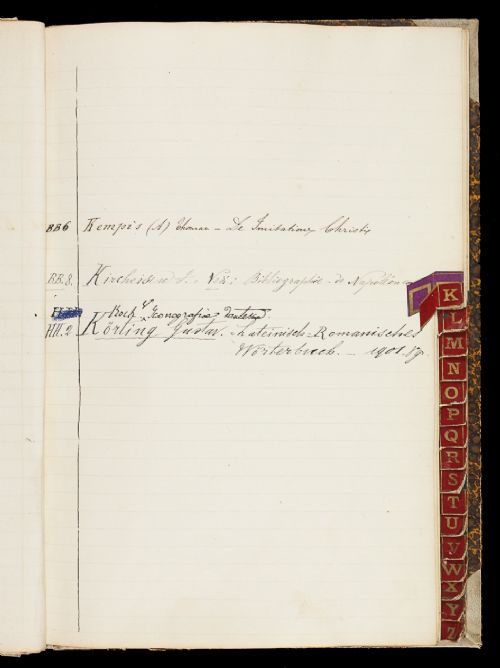 BB6 Kempis (A) Thomas – De Imitatione Christi
BB.8. Kircheisen F. – Vide: Bibliographie de Napoléon
Koch T. Iconografia Dantesca
HH.2 Körling Gustav. Lateinisch-Romanisches
Wörterbuch. – 1901.
K
L
M
N
O
P
Q
R
S
T
U
V
W
X
Y
Z